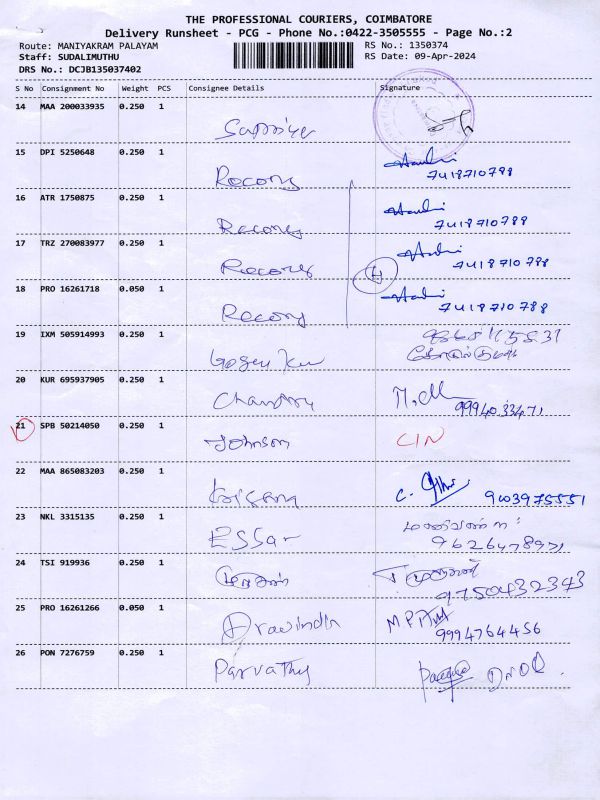 THE PROFESSIONAL COURIERS, COIMBATORE
Delivery Runsheet - PCG - Phone No.:0422-3505555 - Page No.:2
Route: MANIYAKRAM PALAYAM
Staff: SUDALIMUTHU
DRS No.: DCJB135037402
RS No.: 1350374
RS Date: 09-Apr-2024
S No Consignment No Weight PCS Consignee Details Signature
14 MAA 200033935 0.250 1
15 DPI 5250648 0.250 1 Recony 7418710788
16 ATR 1750875 0.250 1 Recony 7418710788
17 TRZ 270083977 0.250 1 Recony 7418710788
18 PRO 16261718 0.050 1 Recony 7418710788
4
19 IXM 505914993 0.250 1
20 KUR 695937905 0.250 1 9994033471
21 SPB 50214050 0.250 1 Johnson CIN
22 MAA 865083203 0.250 1 9003975551
23 NKL 3315135 0.250 1 ESSar 9626478971
24 TSI 919936 0.250 1 9750432343
25 PRO 16261266 0.050 1 9994764456
26 PON 7276759 0.250 1 Parvathy